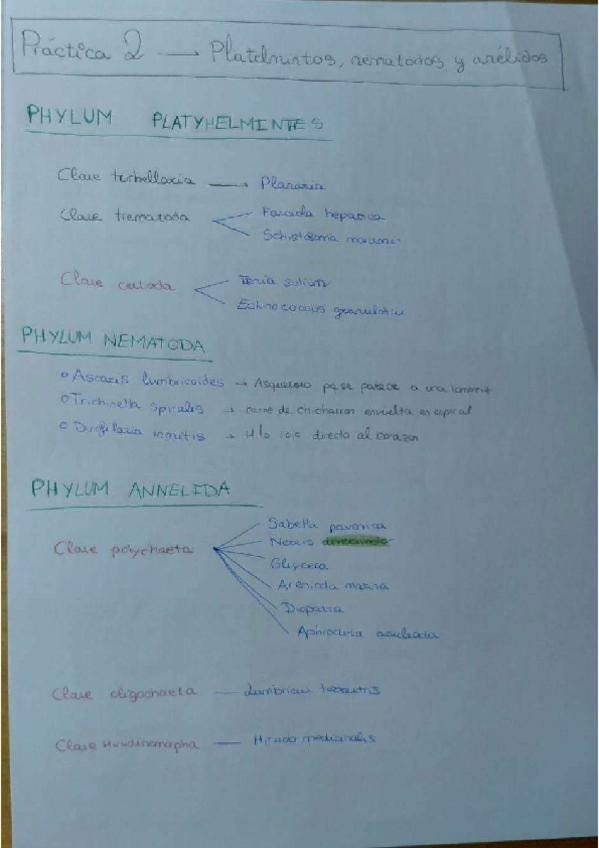 Práctica 2 → Platelmintos, nematodos y anélidos
PHYLUM PLATYHELMINTES
Clase turbellaria → Planaria
Clase trematoda Fasciola hepatica
Schistosoma mansoni
Clase cestoda Tenia solium
Echinococcus granulosus
PHYLUM NEMATODA
Ascaris lumbricoides → Asqueroso pq se parece a una
Trichinella spiralis → carne de chicharron envuelta en espiral
Dirofilaria inmitis → Hilo directo al corazon
PHYLUM ANNELIDA
Sabella pavonina
Clase polychaeta Nereis
Glycera
Arenicola marina
Diopatra
Aphrodita aculeata
Clase oligochaeta — Lumbricus terrestris
Clase Hirudinomorpha — Hirudo medicinalis